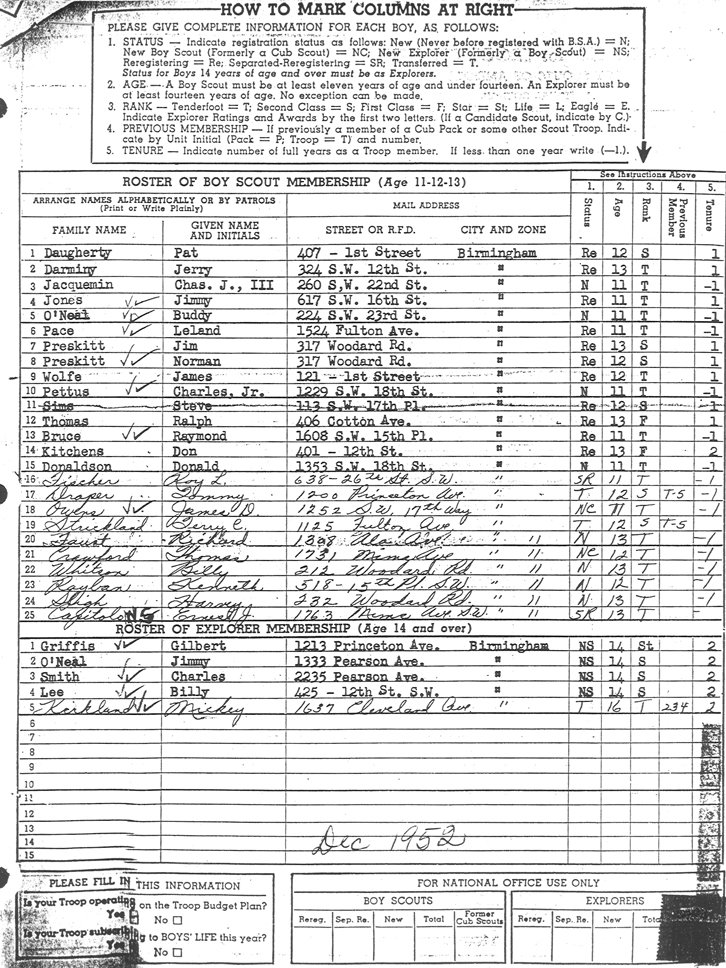 HOW TO MARK COLUMNS AT RIGHT
PLEASE GIVE COMPLETE INFORMATION FOR EACH BOY, AS FOLLOWS:
1. STATUS — Indicate registration status as follows: New (Never before registered with B.S.A.) = N;
New Boy Scout (Formerly a Cub Scout) = NC; New Explorer (Formerly a Boy Scout) = NS;
Reregistering = Re; Separated-Reregistering = SR; Transferred = T.
Status for Boys 14 years of age and over must be as Explorers.
2. AGE — A Boy Scout must be at least eleven years of age and under fourteen. An Explorer must be
at least fourteen years of age. No exception can be made.
3. RANK — Tenderfoot = T; Second Class = S; First Class = F; Star = St; Life = L; Eagle = E.
Indicate Explorer Ratings and Awards by the first two letters. (If a Candidate Scout, indicate by C.)
4. PREVIOUS MEMBERSHIP — If previously a member of a Cub Pack or some other Scout Troop. Indi-
cate by Unit Initial (Pack = P; Troop = T) and number.
5. TENURE — Indicate number of full years as a Troop member. If less than one year write (—1.).
ROSTER OF BOY SCOUT MEMBERSHIP (Age 11-12-13)
See Instructions Above
1. 2. 3. 4. 5.
ARRANGE NAMES ALPHABETICALLY OR BY PATROLS
(Print or Write Plainly)
MAIL ADDRESS
FAMILY NAME GIVEN NAME AND INITIALS STREET OR R.F.D. CITY AND ZONE Status Age Rank Previous Member Tenure
1 Daugherty Pat 407 - 1st Street Birmingham Re 12 S 1
2 Darminy Jerry 324 S.W. 12th St. " Re 13 T 1
3 Jacquemin Chas. J., III 260 S,W. 22nd St. " N 11 T -1
4 Jones Jimmy 617 S.W. 16th St. " Re 11 T 1
5 O'Neal Buddy 224 S.W. 23rd St. " N 11 T -1
6 Pace Leland 1524 Fulton Ave. " Re 11 T -1
7 Preskitt Jim 317 Woodard Rd. " Re 13 S 1
8 Preskitt Norman 317 Woodard Rd. " Re 12 S 1
9 Wolfe James 121 - 1st Street " Re 12 T 1
10 Pettus Charles, Jr. 1229 S.W. 18th St. " N 11 T -1
11 Sims Steve 113 S.W. 17th Pl. " Re 12 S 1
12 Thomas Ralph 406 Cotton Ave. " Re 13 F 1
13 Bruce Raymond 1608 S.W. 15th Pl. " Re 11 T -1
14 Kitchens Don 401 - 12th St. " Re 13 F 2
15 Donaldson Donald 1353 S.W. 18th St. " N 11 T -1
16 Fischer Roy L. 638-26th St. S.W. " SR 11 T -1
17 Draper Tommy 1200 Princeton Ave. " T 12 S T-5 -1
18 Owens James D. 1252 S.W. 17th Way " NC 11 T -1
19 Strickland Terry C. 1125 Fulton Ave " T 12 S T-5
20 Faust Richard Ala Ave. " " N 13 T -1
21 Crawford Thomas 1731 Mims Ave " " NC 12 T -1
22 Whitson Billy 212 Woodard Rd. " " N 13 T -1
23 Kenneth 518-15th Pl. S.W. " N 12 T -1
24 Sligh Harvey 232 Woodard Rd. " " N 13 T -1
25 Ernest J. 1763 Mims Ave S.W. " " SR 13 T
ROSTER OF EXPLORER MEMBERSHIP (Age 14 and over)
1 Griffis Gilbert 1213 Princeton Ave. Birmingham NS 14 St 2
2 O'Neal Jimmy 1333 Pearson Ave. " NS 14 S 2
3 Smith Charles 2235 Pearson Ave. " NS 14 S 2
4 Lee Billy 425 - 12th St. S.W. " NS 14 S 2
5 Kirkland Mickey 1637 Cleveland Ave. " T 16 T 234 2
6
7
8
9
10
11
12
13
14 Dec 1952
15
PLEASE FILL IN THIS INFORMATION
Is your Troop operating on the Troop Budget Plan?
Yes No
Is your Troop subscribing to BOYS' LIFE this year?
Yes No
FOR NATIONAL OFFICE USE ONLY
BOY SCOUTS EXPLORERS
Rereg. Sep. Re. New Total Former Cub Scouts Rereg. Sep. Re. New Total